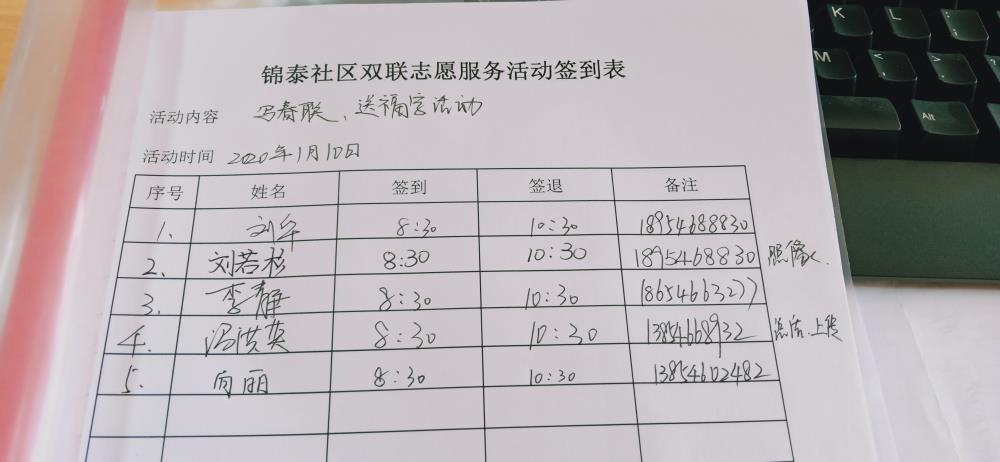 锦泰社区双联志愿服务活动签到表
活动内容 写春联、送福字活动
活动时间 2020年1月10日
序号 姓名 签到 签退 备注
1、 刘军 8:30 10:30 18954688830
2、 刘若杉 8:30 10:30 1895468830 照像
3、 李静 8:30 10:30 18654663277
4、 冯洪英 8:30 10:30 13854668932 总结、上传
5、 向丽 8:30 10:30 13854602482
K L
Alt